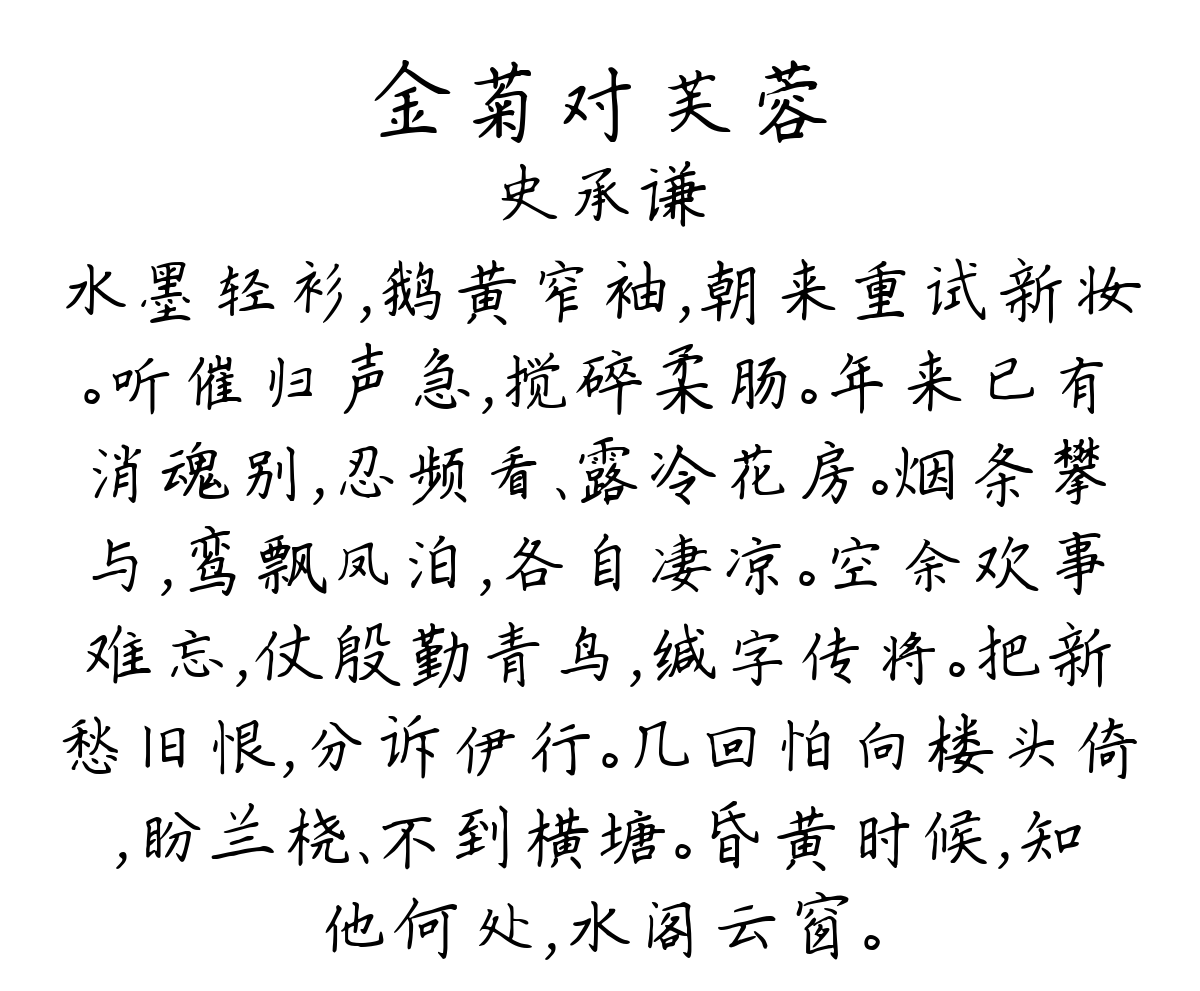 金菊对芙蓉
史承谦
水墨轻衫,鹅黄窄袖,朝来重试新妆
。听催归声急,搅碎柔肠。年来已有
消魂别,忍频看、露冷花房。烟条攀
与,鸾飘凤泊,各自凄凉。空余欢事
难忘,仗殷勤青鸟,缄字传将。把新
愁旧恨,分诉伊行。几回怕向楼头倚
,盼兰桡、不到横塘。昏黄时候,知
他何处,水阁云窗。